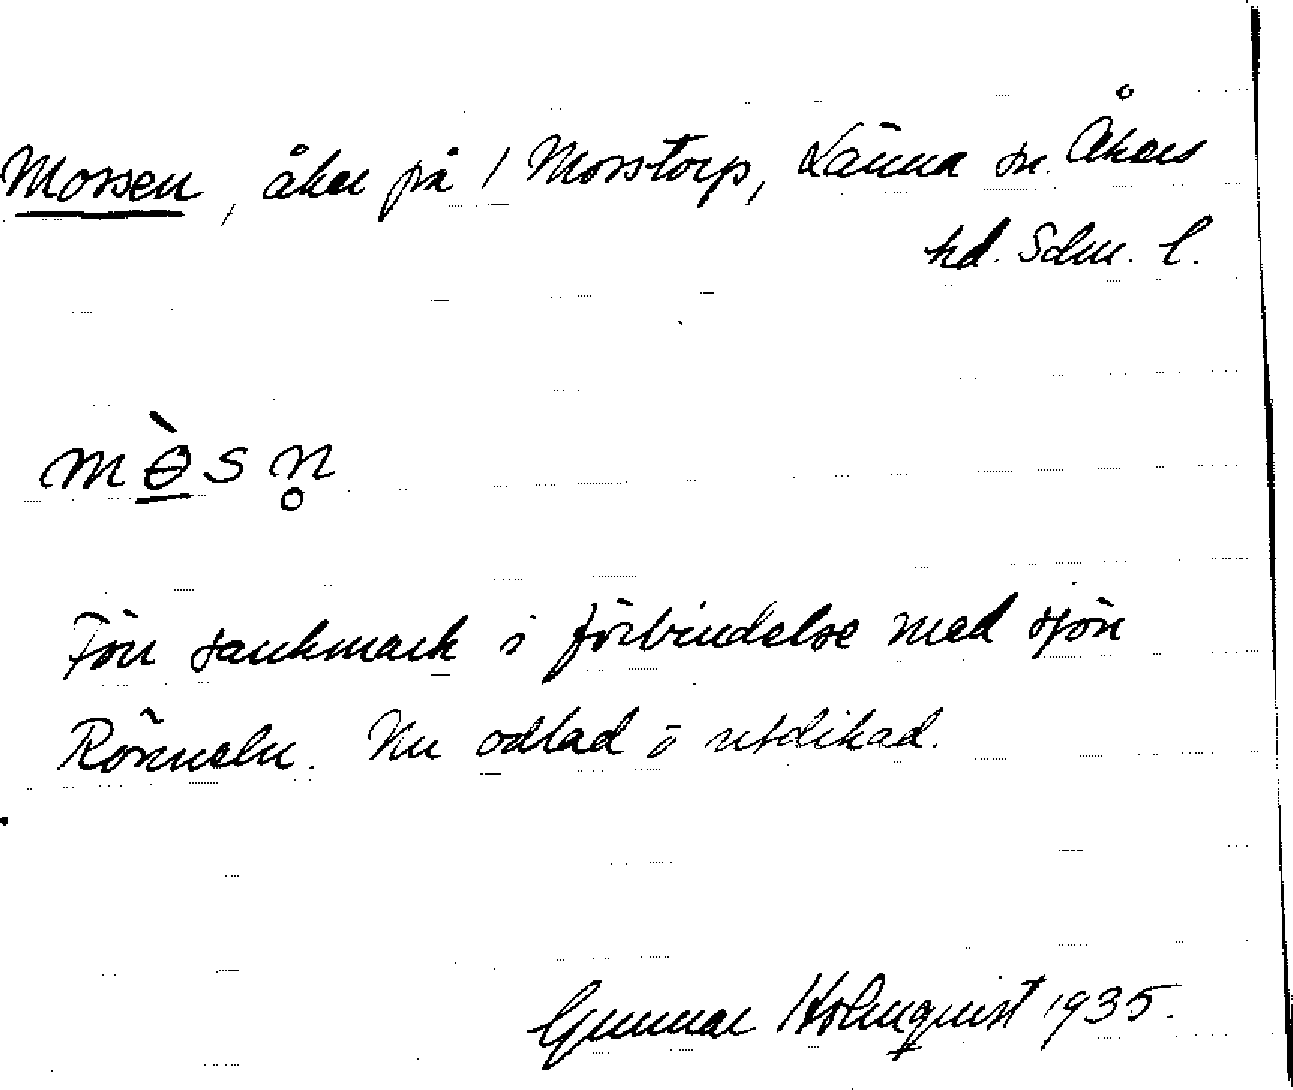 Mossen, åker på 1 Morstorp, Länna sn. Åkers
hd. Sdm. l.
mɵ̀sn̥
Förr sankmark i förbindelse med sjön
Rörmeln. Nu odlad o utdikad.
Gunnar Holmquist 1935.